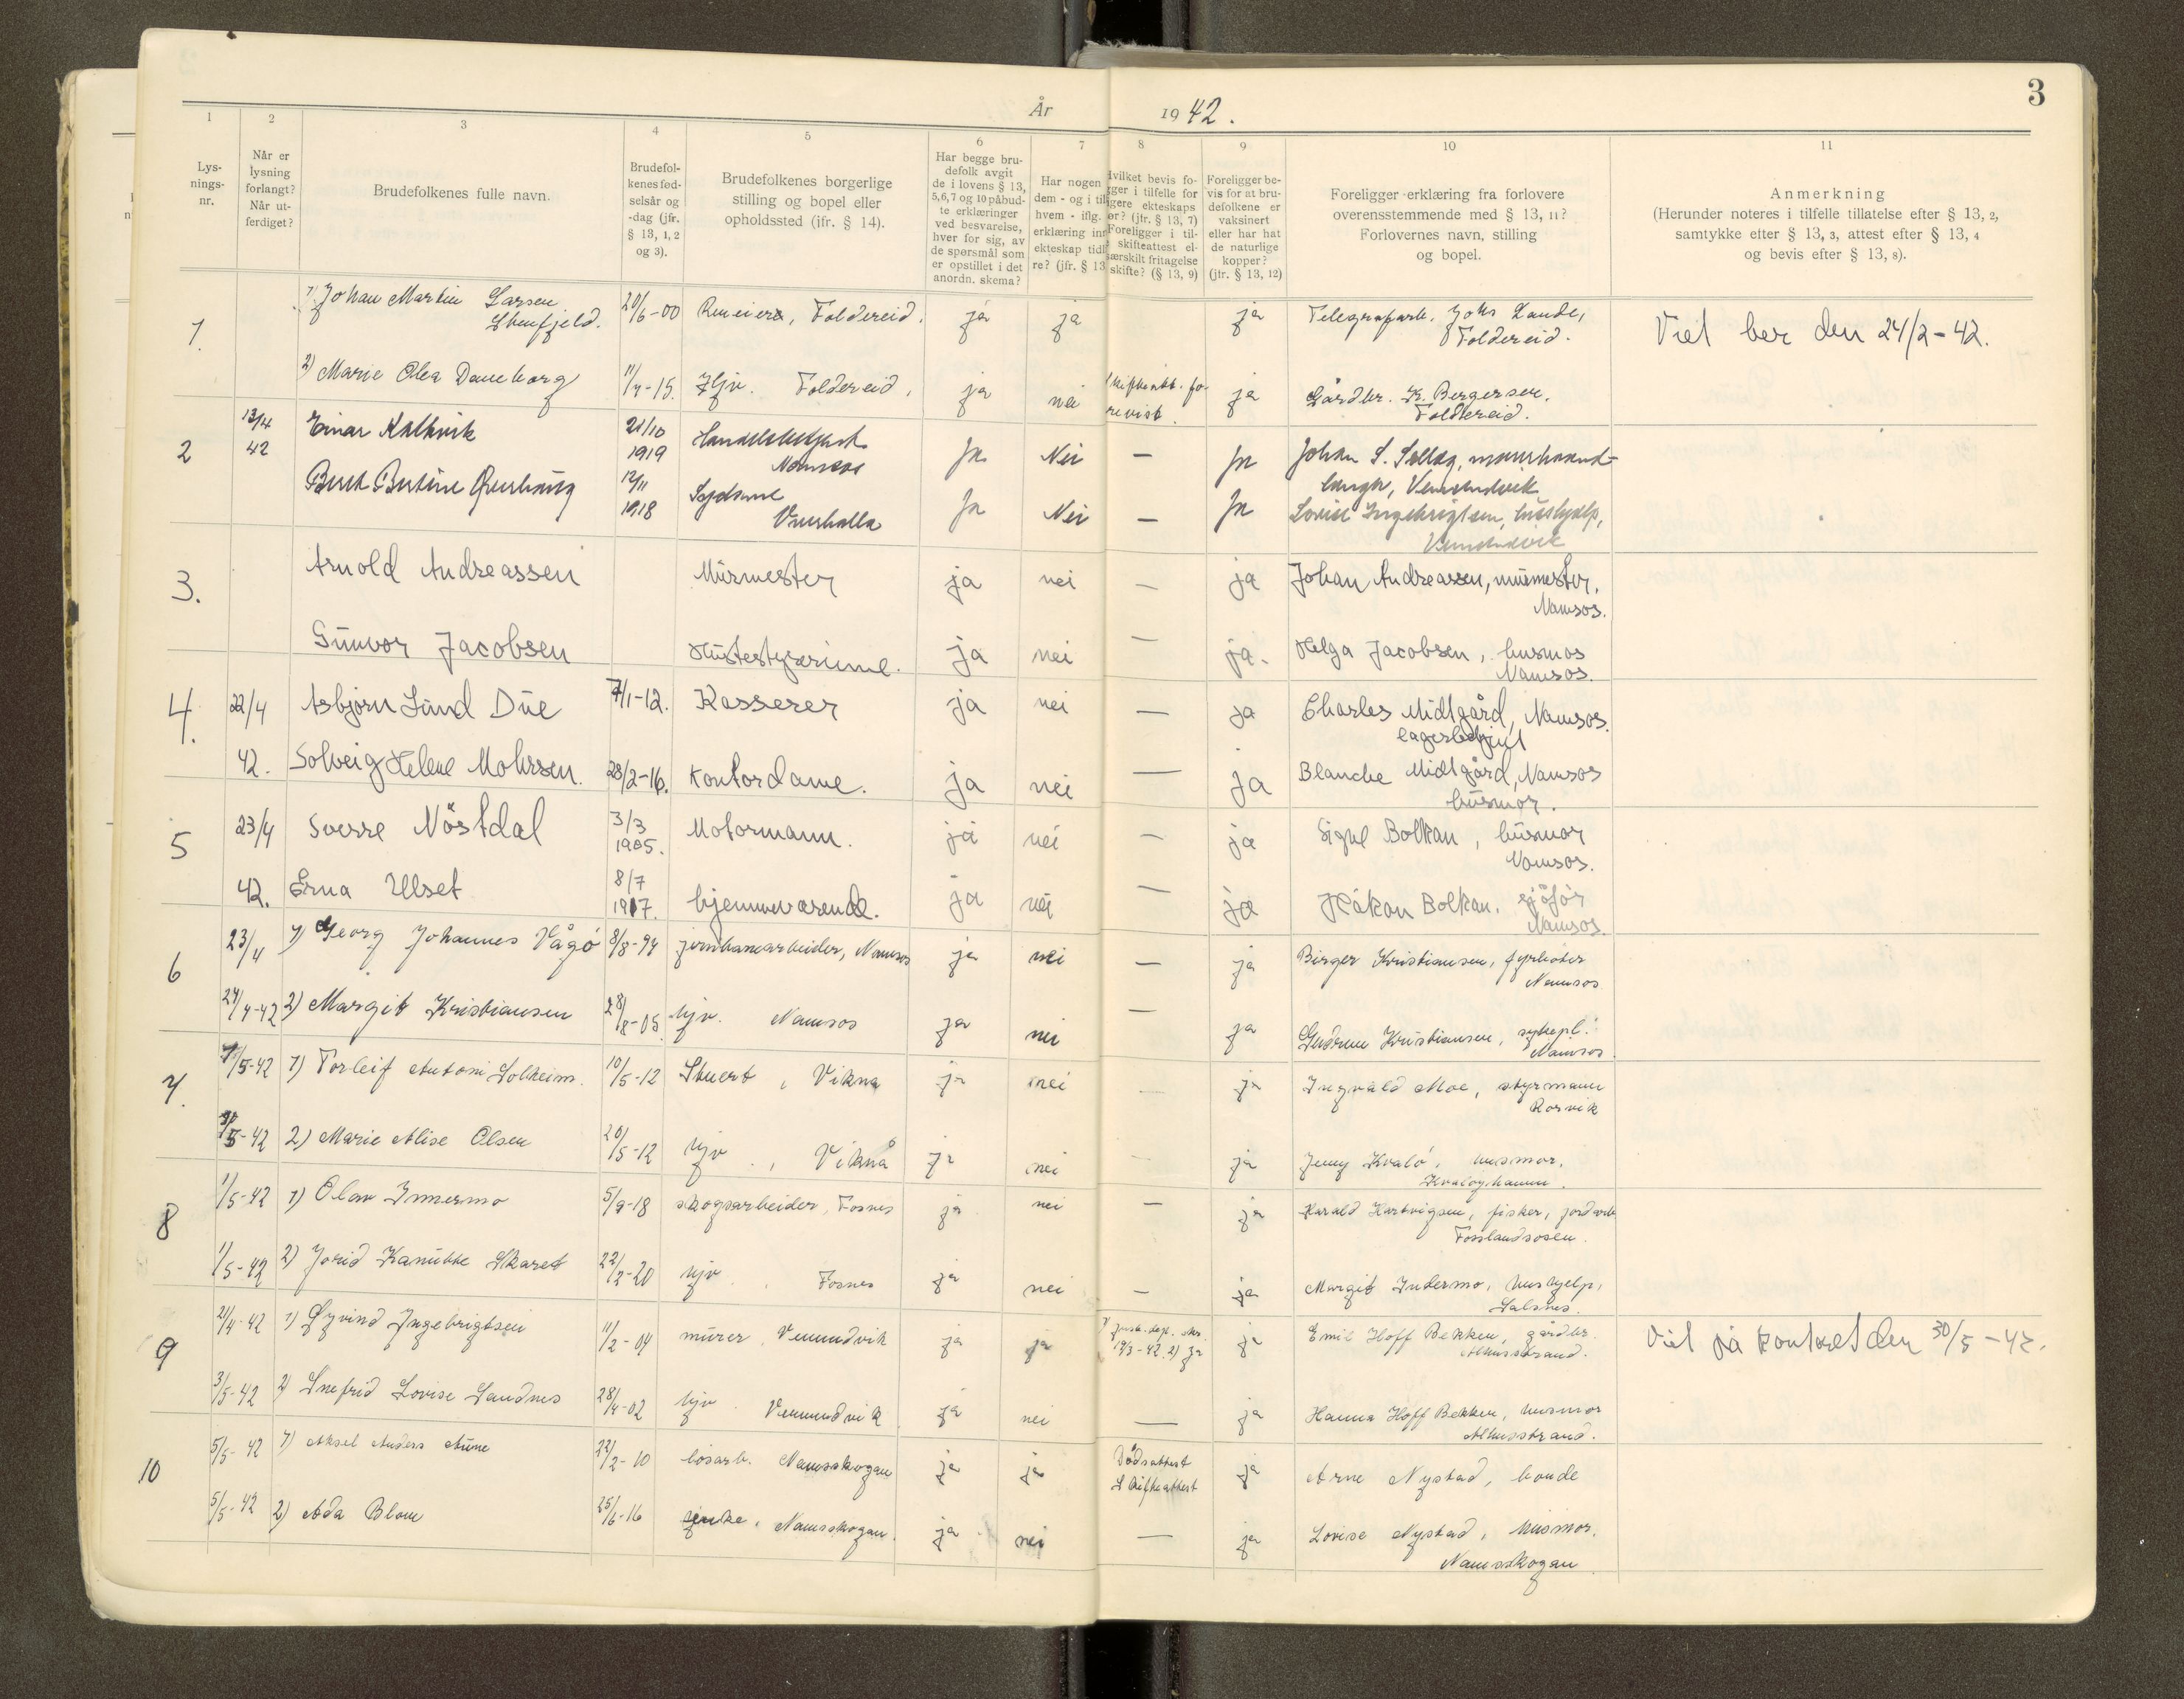 3
År 1942.
1 2 3 4 5 6 7 8 9 10 11
Lys-
nings-
nr.
Når er
lysning
forlangt?
Når ut-
ferdiget?
Brudefolkenes fulle navn.
Brudefol-
kenes fød-
selsår og
-dag (jfr.
§ 13, 1, 2
og 3).
Brudefolkenes borgerlige
stilling og bopel eller
opholdssted (jfr. § 14).
Har begge bru-
defolk avgit
de i lovens § 13,
5,6,7 og 10 påbud-
te erklæringer
ved besvarelse,
hver for sig, av
de spørsmål som
er opstillet i det
anordn. skema?
Har nogen
dem - og i til
hvem - iflg.
erklæring inn
ekteskap tidl
re? (jfr. § 13
vilket bevis fo-
gger i tilfelle for
igere ekteskaps
ør? (jfr. § 13, 7)
Foreligger i til-
skifteattest el-
særskilt fritagelse
skifte? (§ 13, 9)
Foreligger be-
vis for at bru-
defolkene er
vaksinert
eller har hat
de naturlige
kopper?
(jfr. § 13, 12)
Foreligger erklæring fra forlovere
overensstemmende med § 13, 11?
Forlovernes navn, stilling
og bopel.
Anmerkning
(Herunder noteres i tilfelle tillatelse efter § 13, 2,
samtykke efter § 13, 3, attest efter § 13, 4
og bevis efter § 13, 8).
1. 1) Johan Martin Larsen 20/6-00 Foldereid. ja ja ja Telegrafarb. Johs Lande,
Foldereid.
Viet her den 24/2-42.
2) Marie Olea Daneborg 11/4-15. Hjv. Foldereid, ja nei ja Gårdbr. K. Bergersen,
Foldereid.
2 13/4 Einar Kalkvik 21/10
42 1919 Namsos Ja Nei — Ja Johan S.
12/11
1918 Ja Nei — Ja Lovise Ingebrigtsen, hushjelp,
3. Arnold Andreassen Murmester ja nei — ja Johan Andreassen, murmester,
Namsos.
Gunvor Jacobsen Hustestyrerinne. ja nei — ja. Helga Jacobsen, husmor
Namsos.
4. 22/4 Asbjørn Lund Due 7/1-12. Kasserer ja nei — ja Charles Midtgård, Namsos.
42. Solveig Helene Mohrsen. 28/2-16. Kontordame. ja nei — ja Blanche Midtgård, Namsos
husmor.
5 23/4 Sverre Nöstdal 3/3
1905. Motormann. ja nei — ja Signe Bolkan, husmor
Namsos.
42. Erna Ulset 8/7
1917. hjemmeværende. ja nei — ja Håkon Bolkan, sjåfør
Namsos.
6 23/4 1) Georg Johannes Vågø 8/8-94 jernbanearbeider, Namsos ja nei — ja Birger Kristiansen, fyrbøter
Namsos
24/4-42 2) Margit Kristiansen 28/8-05 hjv. Namsos ja nei — ja Gudrun Kristiansen, sykepl.
Namsos.
7. /5-42 1) Torleif Antoni Solheim. 10/5-12 Stuert, Vikna ja nei — ja Ingvald Moe, styrmann
Rørvik
/5-42 2) Marie Alise Olsen 20/5-12 hjv., Vikna ja nei — ja Jenny Kvalø, husmor,
8 1/5-42 1) Olav Innermo 5/9-18 skogsarbeider, Fosnes ja nei — ja Harald Hartvigsen, fisker, jordarb.
Fosslandsosen.
1/5-42 2) Jorid Kanutte Skaret 22/2-20 hjv. Fosnes ja nei — ja Margit Indermo, hushjelp,
Salsnes.
9 21/4-42 1) Øyvind Ingebrigtsen 11/2-04 murer, Vemundvik ja ja 1) just.dep. skr.
19/3-42. 2) ja ja Emil Hoff Bekken, gårdbr.
Alhusstrand.
Viet på kontoret den 30/5-42.
3/5-42 2) Snefrid Lovise Sandnes 28/4-02 hjv. Vemundvik ja nei — ja Hanna Hoff Bekken, husmor
Alhusstrand.
10 5/5-42 1) Aksel Anders Aune 22/2-10 løsarb. Namsskogan ja ja Dødsattest
Skifteattest ja Arne Nystad, bonde
5/5-42 2) Ada Blom 25/6-16 Namsskogan. ja nei — ja Lovise Nystad, husmor,
Namsskogan